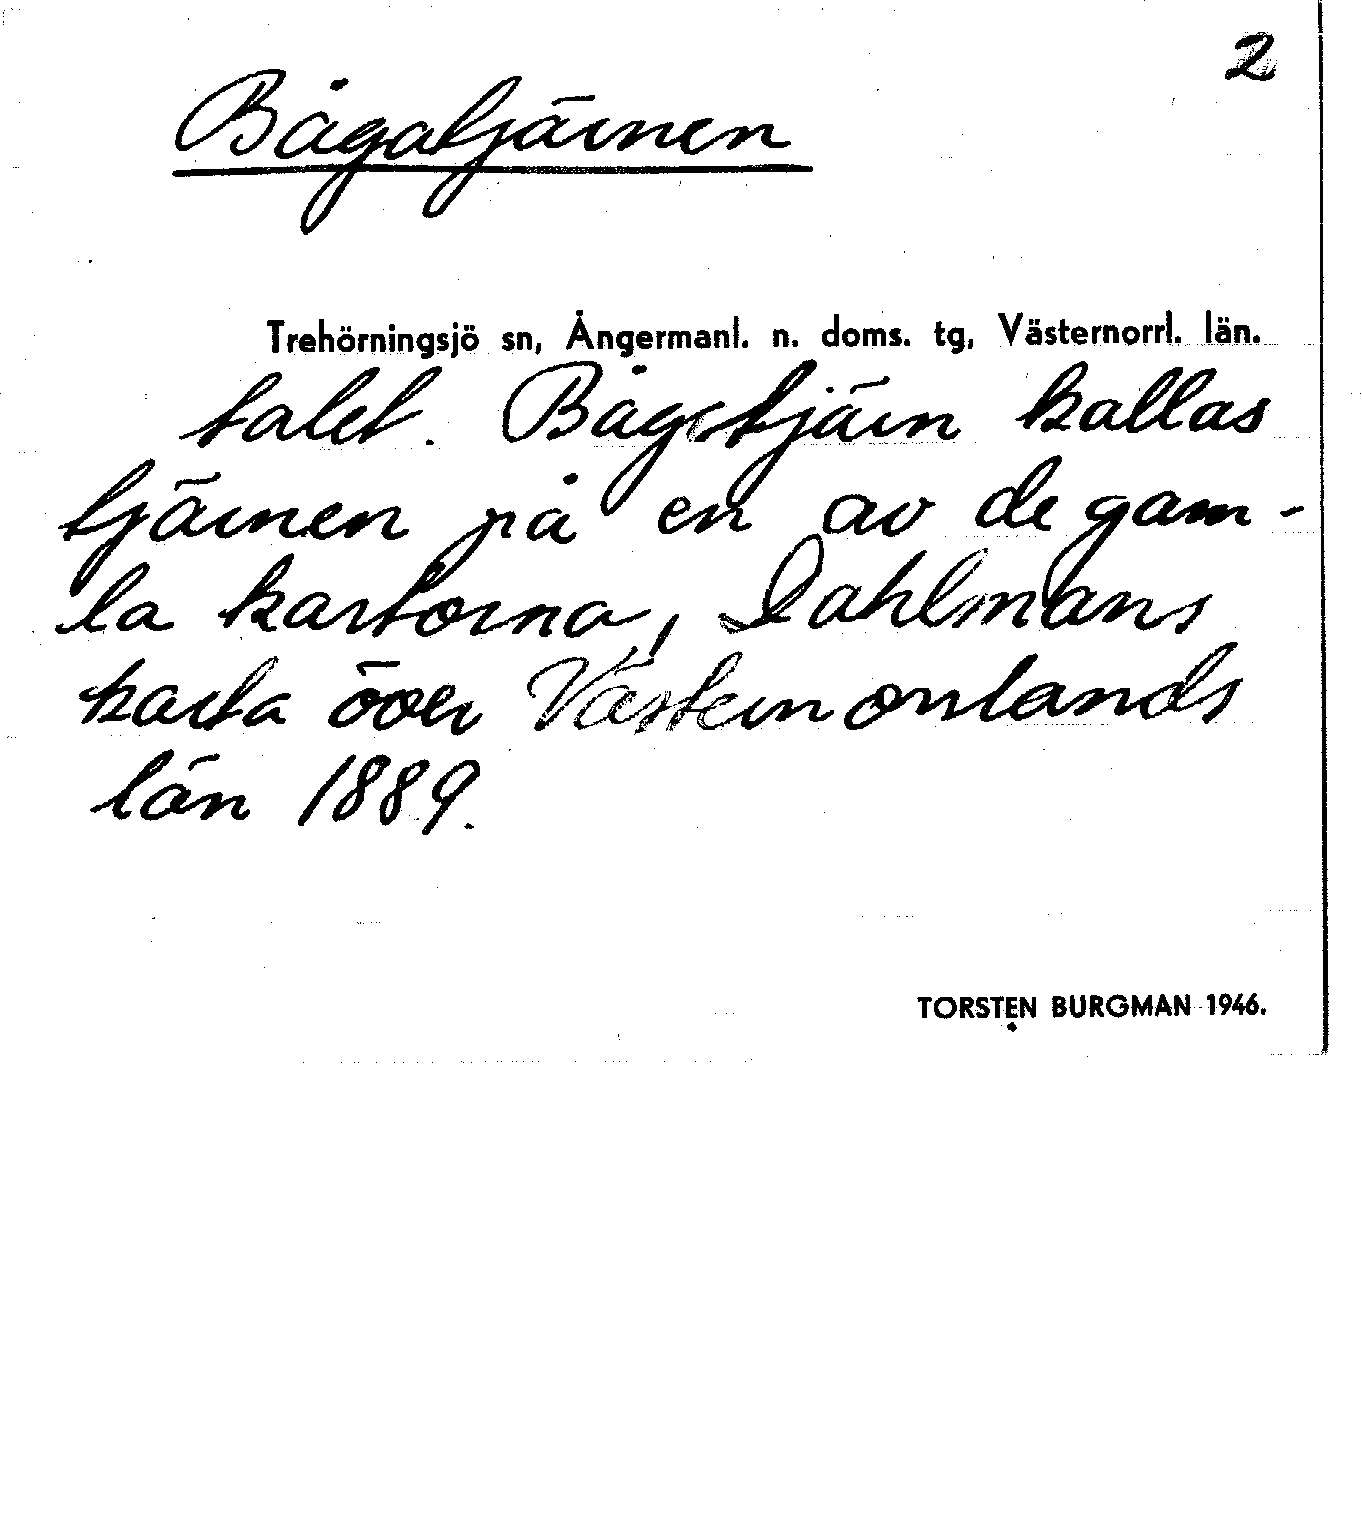 2
Bågatjärnen
Trehörningsjö sn, Ångermanl. n. doms. tg, Västernorrl. län.
talet. Bågatjärn kallas
tjärnen på en av de gam-
la kartorna, Dahlmans
karta över Västernorrlands
län 1889.
TORSTEN BURGMAN 1946.